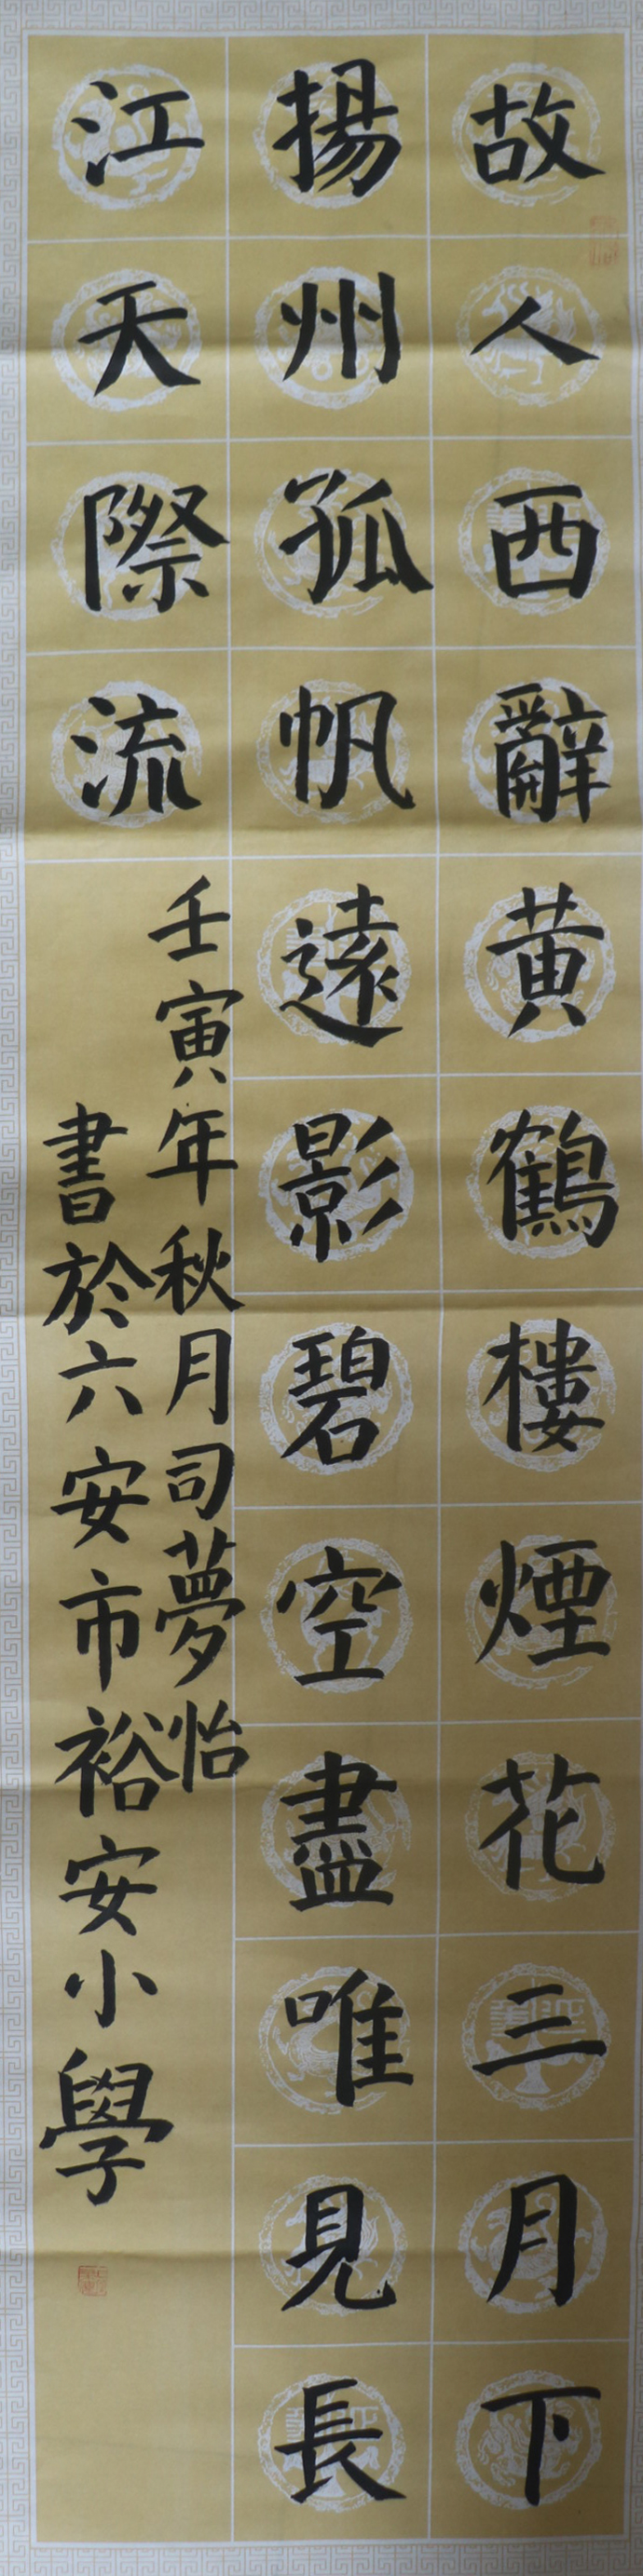 故人西辭黄鶴樓煙花三月下
揚州孤帆遠影碧空盡唯見長
江天際流
壬寅年秋月司夢怡
書於六安市裕安小學